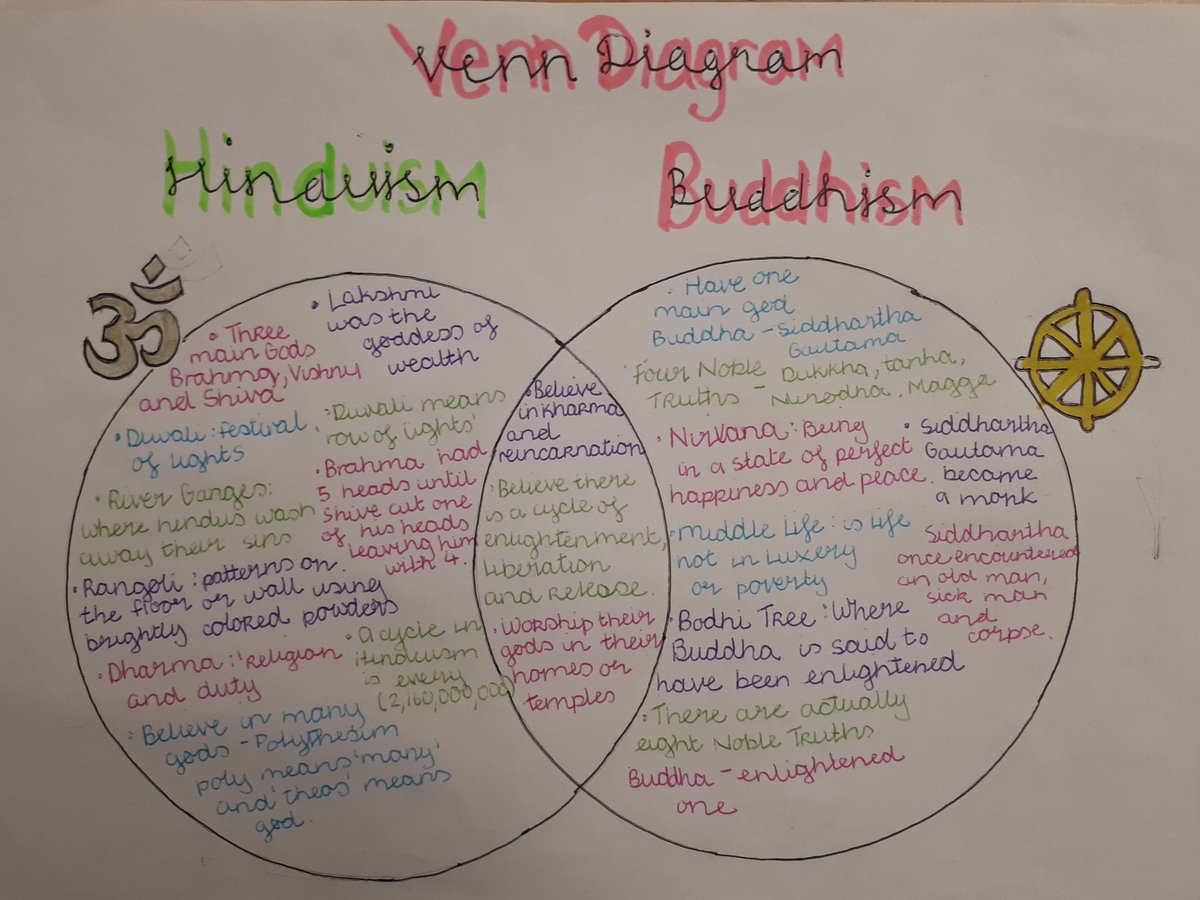 Venn Diagram
Hinduism
Buddhism
ॐ
• Three
main Gods
Brahma, Vishnu
and Shiva
• Lakshmi
was the
goddess of
wealth
• Diwali: festival
of lights
• Diwali means
'row of lights'
• River Ganges:
where hindus wash
away their sins
• Brahma had
5 heads until
shive cut one
of his heads
leaving him
with 4.
• Rangoli: patterns on
the floor or wall using
brightly colored powders
• Dharma: 'religion
and duty
• A cycle in
Hinduism
is every
(2,160,000,000)
• Believe in many
gods - Polythesim
poly means 'many'
and 'theos' means
god.
• Believe
in kharma
and
reincarnation
• Believe there
is a cycle of
enlightenment,
liberation
and release.
• Worship their
gods in their
homes or
temples
• Have one
main god
Buddha - Siddhartha
Gautama
Four Noble
Truths - Dukkha, tanha,
Nirodha, Magga
• Nirvana: Being
in a state of perfect
happiness and peace.
• Siddhartha
Gautama
became
a monk
• Middle Life: is life
not in luxery
or poverty
Siddhartha
once encountered
an old man,
sick man
and
corpse.
• Bodhi Tree: Where
Buddha is said to
have been enlightened
• There are actually
eight Noble Truths
Buddha - enlightened
one